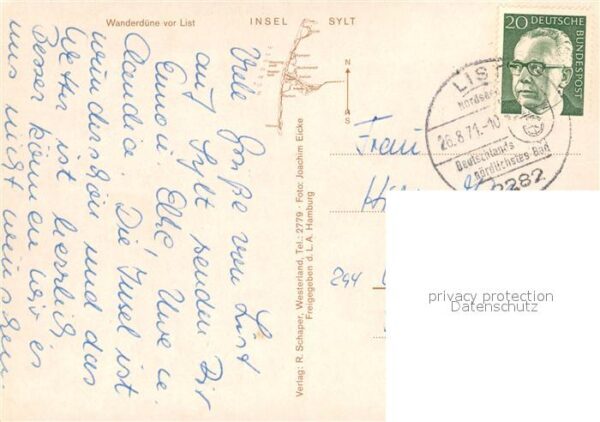 Wanderdüne vor List
INSEL SYLT
20 DEUTSCHE BUNDESPOST
LIST
26.8.71-10
Deutschlands
nördlichstes Bad
2282
Viele Grüße von List
auf Sylt senden Dir
Elke, Uwe u.
Claudia. Die Insel ist
wunderschön und das
Wetter ist herrlich
Besser können wir es
uns nicht wünschen.
Frau
Verlag: R. Schaper, Westerland, Tel.: 2779 · Foto: Joachim Eicke
Freigegeben d. L.A. Hamburg
privacy protection
Datenschutz